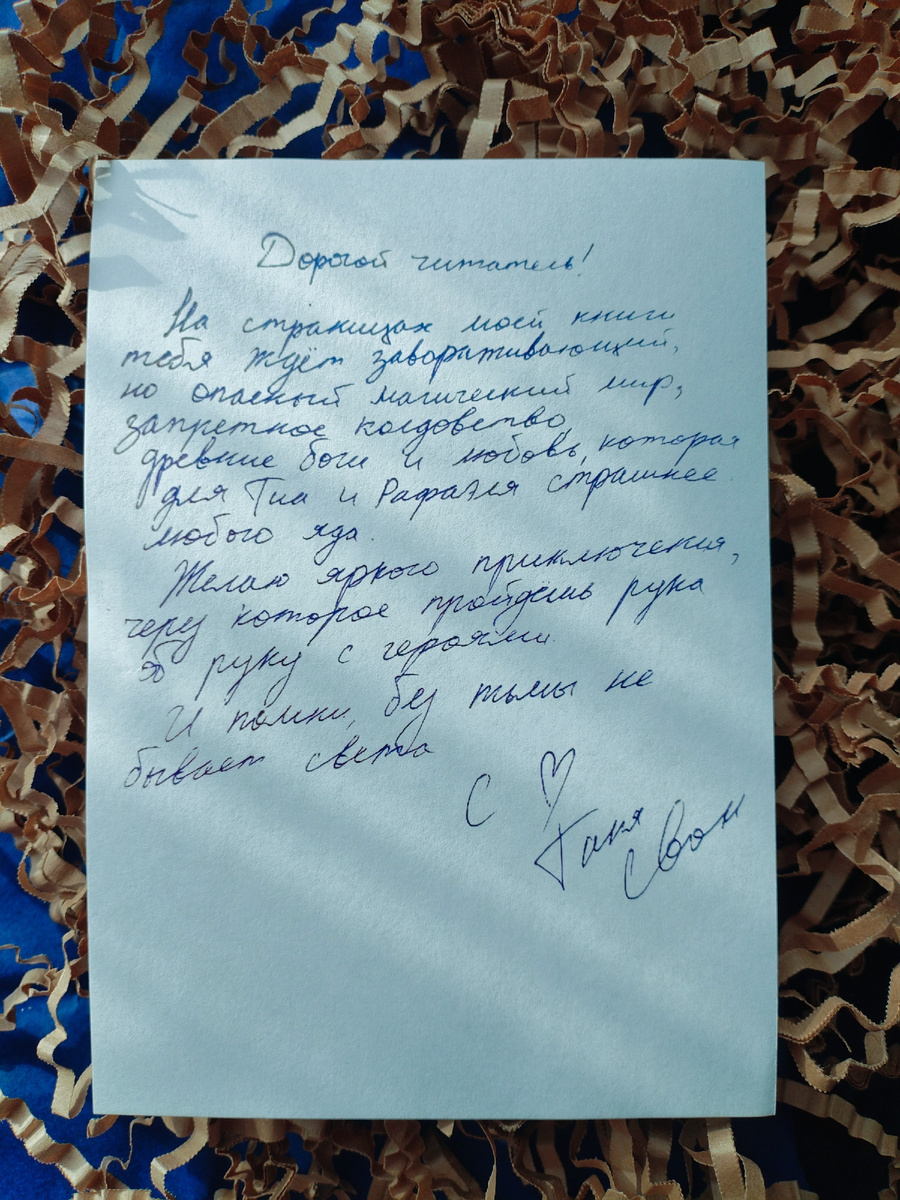 Дорогой читатель!
На страницах моей книги
тебя ждёт завораживающий,
но опасный магический мир,
запретное колдовство,
древние боги и любовь, которая
для Тиа и Рафаэля страшнее
любого яда.
Желаю яркого приключения,
через которое пройдёшь рука
об руку с героями.
И помни, без тьмы не
бывает света
С ♡
Таня Свон